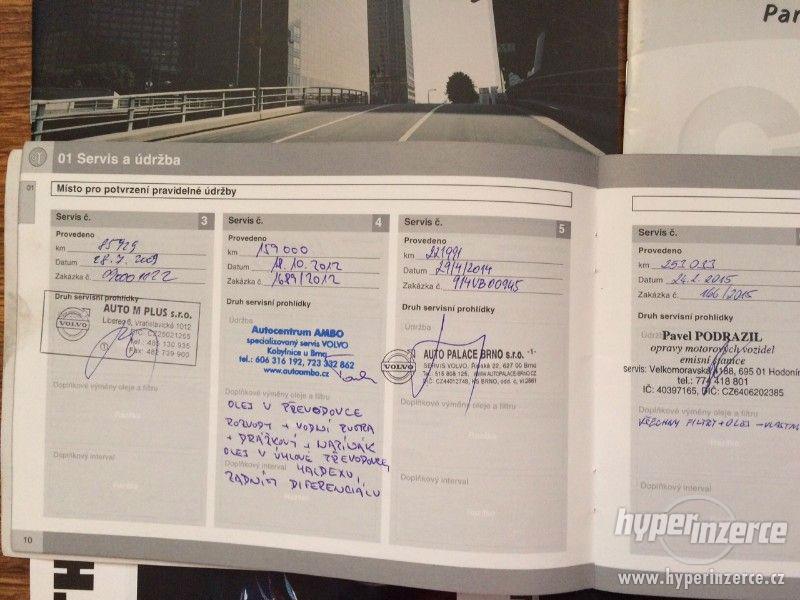 Par
01 Servis a údržba
01
Místo pro potvrzení pravidelné údržby
Servis č. 3
Provedeno
km 85929
Datum 28.7.2009
Zakázka č.
Druh servisní prohlídky
VOLVO
AUTO M PLUS s.r.o.
Liberec 6, Vratislavická 1012
DIČ: CZ25021265
tel.: 485 130 935
Fax: 482 739 900
Doplňkové výměny oleje a filtru
Razítko
Doplňkový interval
Razítko
10
Servis č. 4
Provedeno
km 159000
Datum 18.10.2012
Zakázka č. 1689/2012
Druh servisní prohlídky
Údržba
Autocentrum AMBO
specializovaný servis VOLVO
Kobylnice u Brna
tel.: 606 316 192, 723 332 862
www.autoambo.cz
Doplňkové výměny oleje a filtru
OLEJ V PŘEVODOVCE
ROZVODY + VODNÍ PUMPA
+ DRÁŽKOVÝ + NAPÍNÁK
OLEJ V ÚHLOVÉ PŘEVODOVCE,
Doplňkový interval
HALDEXU,
ZADNÍM DIFERENCIÁLU
Servis č. 5
Provedeno
km 221991
Datum 29/4/2014
Zakázka č. 9/4VB00945
Druh servisní prohlídky
Údržba
VOLVO
AUTO PALACE BRNO s.r.o. -1-
SERVIS VOLVO, Řípská 22, 627 00 Brno
518 808 125, www.AUTOPALACE-BRNO.CZ
DIČ: CZ44012748, KS BRNO, odd. c, vl.2861
Doplňkové výměny oleje a filtru
Doplňkový interval
Razítko
Servis č.
Provedeno
km 253 033
Datum 24.2.2015
Zakázka č. 166/2015
Druh servisní prohlídky
Údržba
Pavel PODRAZIL
opravy motorových vozidel
emisní stanice
servis: Velkomoravská 695 01 Hodonín
tel.: 774 418 801
IČ: 40397165, DIČ: CZ6406202385
Doplňkové výměny oleje a filtru
VŠECHNY FILTRY + OLEJ - VLASTNÍ
Doplňkový interval
hyperinzerce
www.hyperinzerce.cz